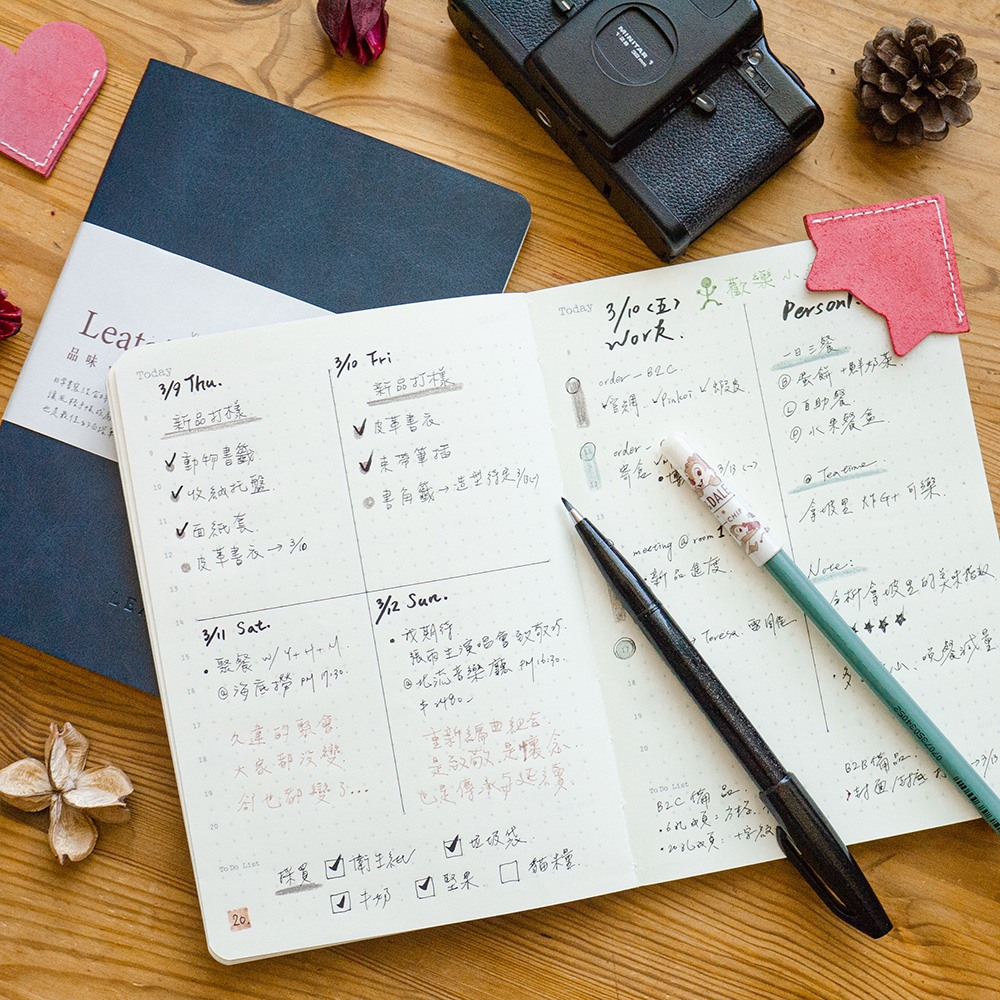 MINITAR 1
1:2.8 32mm
品味
Today
3/9 Thu.
新品打樣
✓動物書籤
✓收納托盤
✓面紙套
皮革書衣→3/10
3/10 Fri
新品打樣
✓皮革書衣
✓束帶筆插
書角籤→造型待定 3/13(一)
3/11 Sat.
•聚餐 w/ Y+H+M.
@海底撈 PM 17:30.
久違的聚會
大家都沒變
卻也都變了...
3/12 Sun.
•我期待
張雨生演唱會致敬
@北流音樂廳 PM 16:30.
$2480.-
重新編曲組合.
是致敬,是懷念.
也是傳承與延續
To Do List
採買
☑衛生紙
☑垃圾袋
☑牛奶
☑堅果
☐貓糧
20.
Today
3/10(五)
Work.
歡樂小
order - B2C
✓官網. ✓Pinkoi ✓蝦皮
order
寄倉
3/13(一)
meeting @ room 1
•新品進度.
Teresa.
To Do List
B2C備品
B2B備品
一日三餐
Ⓑ蛋餅+鮮奶茶
Ⓛ自助餐
Ⓓ水果餐盒
@Teatime
拿坡里 炸G+可樂.
Note:
分析拿坡里的美味指數
晚餐減量